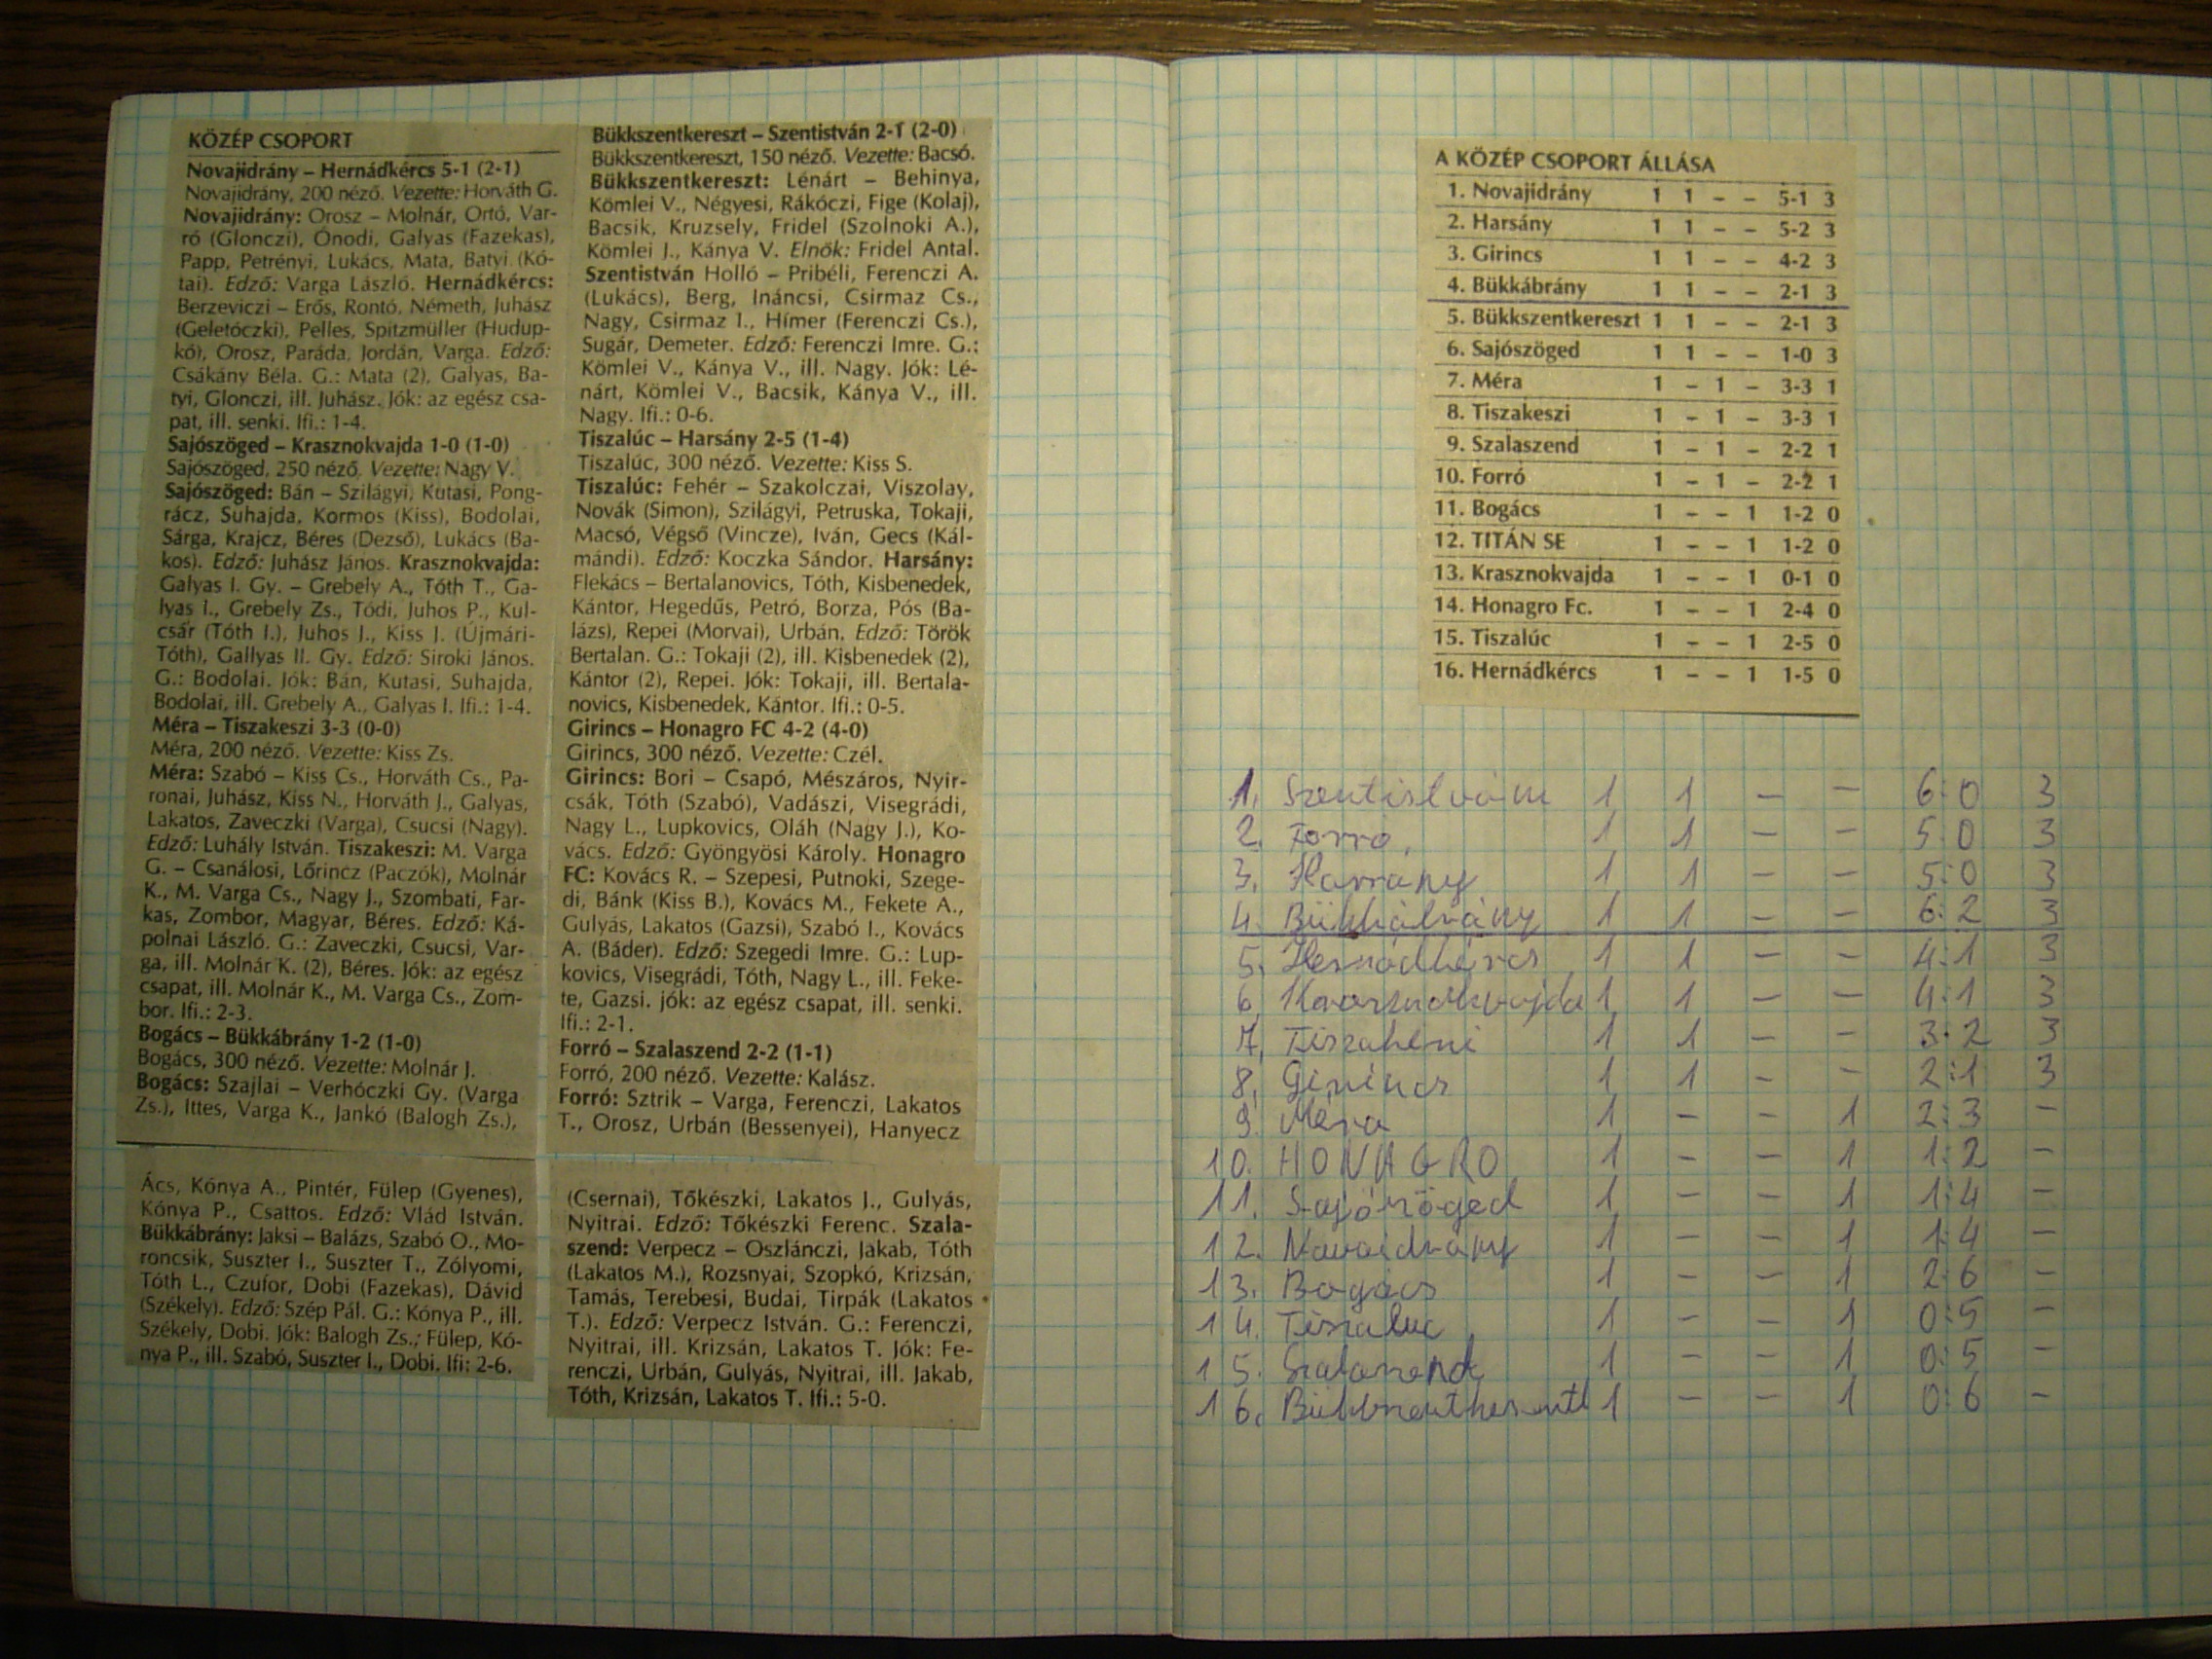 KÖZÉP CSOPORT
Novajidrány – Hernádkércs 5-1 (2-1)
Novajidrány, 200 néző. Vezette: Horváth G.
Novajidrány: Orosz – Molnár, Ortó, Var-
ró (Glonczi), Ónodi, Galyas (Fazekas),
Papp, Petrényi, Lukács, Mata, Batyi (Kó-
tai). Edző: Varga László. Hernádkércs:
Berzeviczi – Erős, Rontó, Németh, Juhász
(Geletóczki), Pelles, Spitzmüller (Hudup-
kó), Orosz, Paráda, Jordán, Varga. Edző:
Csákány Béla. G.: Mata (2), Galyas, Ba-
tyi, Glonczi, ill. Juhász. Jók: az egész csa-
pat, ill. senki. Ifi.: 1-4.
Sajószöged – Krasznokvajda 1-0 (1-0)
Sajószöged, 250 néző. Vezette: Nagy V.
Sajószöged: Bán – Szilágyi, Kutasi, Pong-
rácz, Suhajda, Kormos (Kiss), Bodolai,
Sárga, Krajcz, Béres (Dezső), Lukács (Ba-
kos). Edző: Juhász János. Krasznokvajda:
Galyas I. Gy. – Grebely A., Tóth T., Ga-
lyas I., Grebely Zs., Tódi, Juhos P., Kul-
csár (Tóth I.), Juhos J., Kiss J. (Újmári-
Tóth), Gallyas II. Gy. Edző: Siroki János.
G.: Bodolai. Jók: Bán, Kutasi, Suhajda,
Bodolai, ill. Grebely A., Galyas I. Ifi.: 1-4.
Méra – Tiszakeszi 3-3 (0-0)
Méra, 200 néző. Vezette: Kiss Zs.
Méra: Szabó – Kiss Cs., Horváth Cs., Pa-
ronai, Juhász, Kiss N., Horváth J., Galyas,
Lakatos, Zaveczki (Varga), Csucsi (Nagy).
Edző: Luhály István. Tiszakeszi: M. Varga
G. – Csanálosi, Lőrincz (Paczók), Molnár
K., M. Varga Cs., Nagy J., Szombati, Far-
kas, Zombor, Magyar, Béres. Edző: Ká-
polnai László. G.: Zaveczki, Csucsi, Var-
ga, ill. Molnár K. (2), Béres. Jók: az egész
csapat, ill. Molnár K., M. Varga Cs., Zom-
bor. Ifi.: 2-3.
Bogács – Bükkábrány 1-2 (1-0)
Bogács, 300 néző. Vezette: Molnár J.
Bogács: Szajlai – Verhóczki Gy. (Varga
Zs.), Ittes, Varga K., Jankó (Balogh Zs.),
Ács, Kónya A., Pintér, Fülep (Gyenes),
Kónya P., Csattos. Edző: Vlád István.
Bükkábrány: Jaksi – Balázs, Szabó O., Mo-
roncsik, Suszter I., Suszter T., Zólyomi,
Tóth L., Czufor, Dobi (Fazekas), Dávid
(Székely). Edző: Szép Pál. G.: Kónya P., ill.
Székely, Dobi. Jók: Balogh Zs., Fülep, Kó-
nya P., ill. Szabó, Suszter I., Dobi. Ifi: 2-6.
Bükkszentkereszt – Szentistván 2-1 (2-0)
Bükkszentkereszt, 150 néző. Vezette: Bacsó.
Bükkszentkereszt: Lénárt – Behinya,
Kömlei V., Négyesi, Rákóczi, Fige (Kolaj),
Bacsik, Kruzsely, Fridel (Szolnoki A.),
Kömlei J., Kánya V. Elnök: Fridel Antal.
Szentistván Holló – Pribéli, Ferenczi A.
(Lukács), Berg, Ináncsi, Csirmaz Cs.,
Nagy, Csirmaz I., Hímer (Ferenczi Cs.),
Sugár, Demeter. Edző: Ferenczi Imre. G.:
Kömlei V., Kánya V., ill. Nagy. Jók: Lé-
nárt, Kömlei V., Bacsik, Kánya V., ill.
Nagy. Ifi.: 0-6.
Tiszalúc – Harsány 2-5 (1-4)
Tiszalúc, 300 néző. Vezette: Kiss S.
Tiszalúc: Fehér – Szakolczai, Viszolay,
Novák (Simon), Szilágyi, Petruska, Tokaji,
Macsó, Végső (Vincze), Iván, Gecs (Kál-
mándi). Edző: Koczka Sándor. Harsány:
Flekács – Bertalanovics, Tóth, Kisbenedek,
Kántor, Hegedűs, Petró, Borza, Pós (Ba-
lázs), Repei (Morvai), Urbán. Edző: Török
Bertalan. G.: Tokaji (2), ill. Kisbenedek (2),
Kántor (2), Repei. Jók: Tokaji, ill. Bertala-
novics, Kisbenedek, Kántor. Ifi.: 0-5.
Girincs – Honagro FC 4-2 (4-0)
Girincs, 300 néző. Vezette: Czél.
Girincs: Bori – Csapó, Mészáros, Nyir-
csák, Tóth (Szabó), Vadászi, Visegrádi,
Nagy L., Lupkovics, Oláh (Nagy J.), Ko-
vács. Edző: Gyöngyösi Károly. Honagro
FC: Kovács R. – Szepesi, Putnoki, Szege-
di, Bánk (Kiss B.), Kovács M., Fekete A.,
Gulyás, Lakatos (Gazsi), Szabó I., Kovács
A. (Báder). Edző: Szegedi Imre. G.: Lup-
kovics, Visegrádi, Tóth, Nagy L., ill. Feke-
te, Gazsi. jók: az egész csapat, ill. senki.
Ifi.: 2-1.
Forró – Szalaszend 2-2 (1-1)
Forró, 200 néző. Vezette: Kalász.
Forró: Sztrik – Varga, Ferenczi, Lakatos
T., Orosz, Urbán (Bessenyei), Hanyecz
(Csernai), Tőkészki, Lakatos J., Gulyás,
Nyitrai. Edző: Tőkészki Ferenc. Szala-
szend: Verpecz – Oszlánczi, Jakab, Tóth
(Lakatos M.), Rozsnyai, Szopkó, Krizsán,
Tamás, Terebesi, Budai, Tirpák (Lakatos
T.). Edző: Verpecz István. G.: Ferenczi,
Nyitrai, ill. Krizsán, Lakatos T. Jók: Fe-
renczi, Urbán, Gulyás, Nyitrai, ill. Jakab,
Tóth, Krizsán, Lakatos T. Ifi.: 5-0.
A KÖZÉP CSOPORT ÁLLÁSA
1. Novajidrány 1 1 – – 5-1 3
2. Harsány 1 1 – – 5-2 3
3. Girincs 1 1 – – 4-2 3
4. Bükkábrány 1 1 – – 2-1 3
5. Bükkszentkereszt 1 1 – – 2-1 3
6. Sajószöged 1 1 – – 1-0 3
7. Méra 1 – 1 – 3-3 1
8. Tiszakeszi 1 – 1 – 3-3 1
9. Szalaszend 1 – 1 – 2-2 1
10. Forró 1 – 1 – 2-2 1
11. Bogács 1 – – 1 1-2 0
12. TITÁN SE 1 – – 1 1-2 0
13. Krasznokvajda 1 – – 1 0-1 0
14. Honagro Fc. 1 – – 1 2-4 0
15. Tiszalúc 1 – – 1 2-5 0
16. Hernádkércs 1 – – 1 1-5 0
1. Szentistván 1 1 – – 6:0 3
2. Forró 1 1 – – 5:0 3
3. Harsány 1 1 – – 5:0 3
4. Bükkábrány 1 1 – – 6:2 3
5. Hernádkércs 1 1 – – 4:1 3
6. Krasznokvajda 1 1 – – 4:1 3
7. Tiszakeszi 1 1 – – 3:2 3
8. Girincs 1 1 – – 2:1 3
9. Méra 1 – – 1 2:3 –
10. HONAGRO 1 – – 1 1:2 –
11. Sajószöged 1 – – 1 1:4 –
12. Novaidrány 1 – – 1 1:4 –
13. Bogács 1 – – 1 2:6 –
14. Tiszaluc 1 – – 1 0:5 –
15. Szalaszend 1 – – 1 0:5 –
16. 1 – – 1 0:6 –